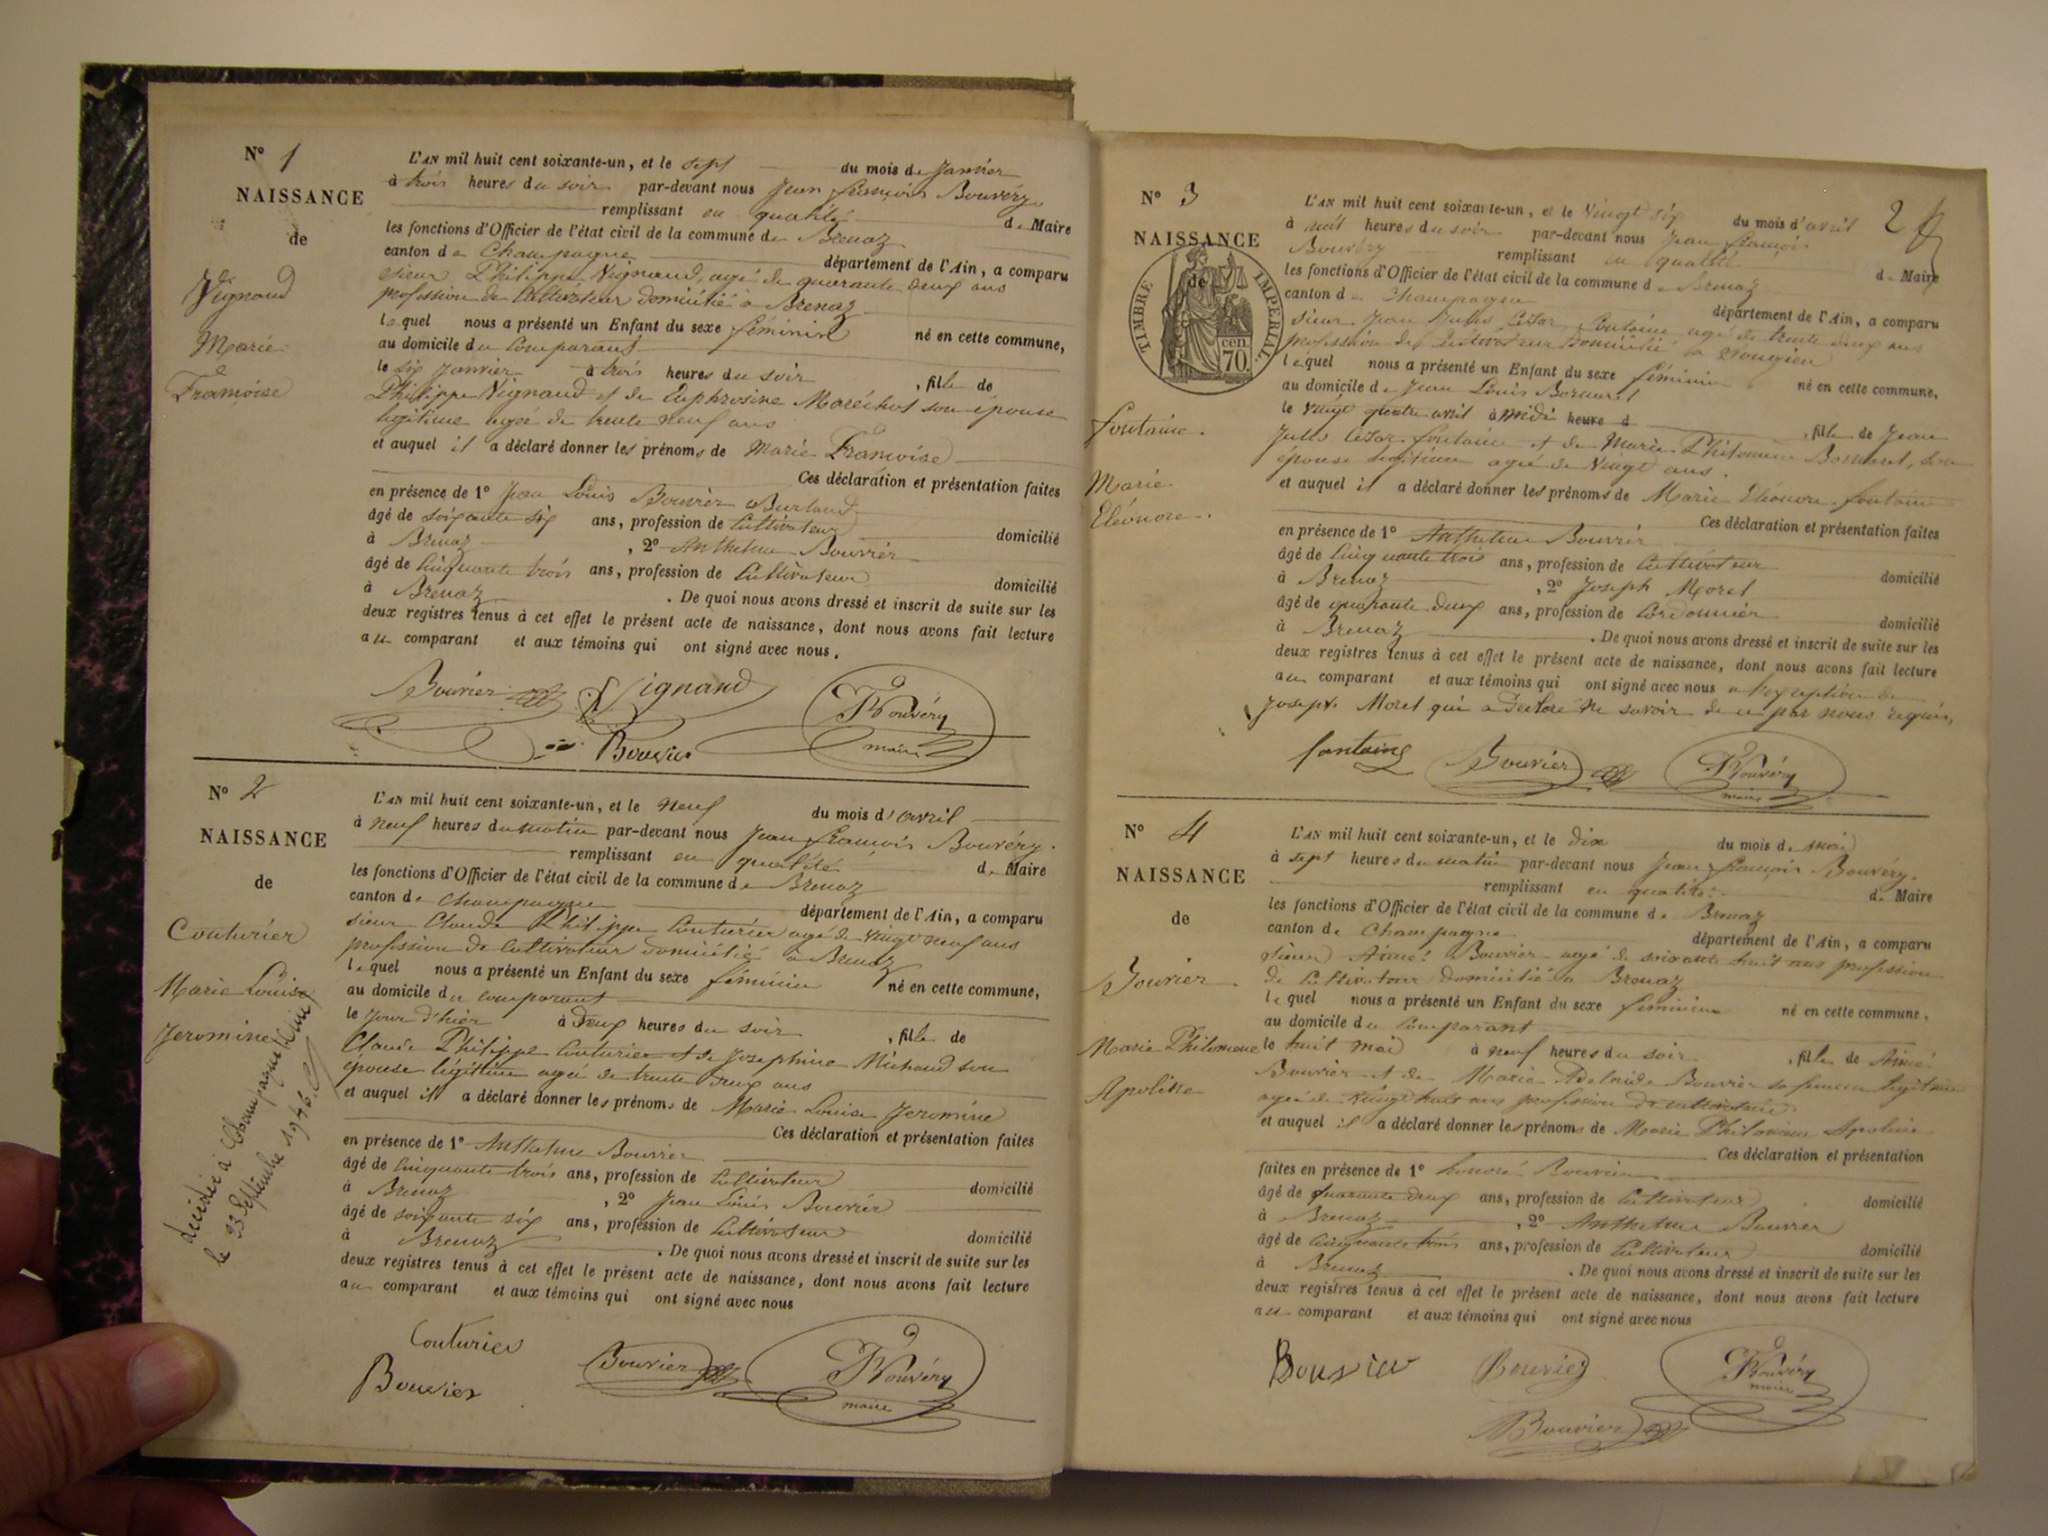 N° 1
NAISSANCE
de
Vignand
Marie
Françoise
L'AN mil huit cent soixante-un, et le sept du mois de Janvier
à trois heures du soir par-devant nous Jean françois Bouvéry
remplissant en qualité de Maire
les fonctions d'Officier de l'état civil de la commune de Brenaz
canton de Champagne département de l'Ain, a comparu
sieur Philippe Vignand, agé de quarante deux ans
profession de Cultivateur domicilié a Brenaz
lequel nous a présenté un Enfant du sexe féminin né en cette commune,
au domicile du Comparant
le six Janvier à trois heures du soir, fille de
Philippe Vignand et de Euphrosine Maréchal son épouse
légitime agée de trente neuf ans
et auquel il a déclaré donner les prénoms de Marie Françoise
Ces déclaration et présentation faites
en présence de 1° Jean Louis Bouvier Burland
âgé de soixante six ans, profession de Cultivateur domicilié
à Brenaz, 2° Anthelme Bouvier
âgé de Cinquante trois ans, profession de Cultivateur domicilié
à Brenaz. De quoi nous avons dressé et inscrit de suite sur les
deux registres tenus à cet effet le présent acte de naissance, dont nous avons fait lecture
au comparant et aux témoins qui ont signé avec nous.
Bouvier Vignand Bouvéry
Bouvier maire
N° 2
NAISSANCE
de
Couturier
Marie Louise
Jeromine
décédée à Champagne (Ain)
le 23 Septembre 1946
L'AN mil huit cent soixante-un, et le neuf du mois d'avril
à neuf heures du matin par-devant nous Jean françois Bouvéry.
remplissant en qualité de Maire
les fonctions d'Officier de l'état civil de la commune de Brenaz
canton de Champagne département de l'Ain, a comparu
sieur Claude Philippe Couturier agé de vingt neuf ans
profession de Cultivateur domicilié a Brenaz
lequel nous a présenté un Enfant du sexe féminin né en cette commune,
au domicile du comparant
le Jour d'hier à Deux heures du soir, fille de
Claude Philippe Couturier et de Josephine Michaud son
épouse légitime agée de trente deux ans
et auquel il a déclaré donner les prénoms de Marie Louise Jeromine
Ces déclaration et présentation faites
en présence de 1° Anthelme Bouvier
âgé de Cinquante trois ans, profession de Cultivateur domicilié
à Brenaz, 2° Jean Louis Bouvier
âgé de soixante six ans, profession de Cultivateur domicilié
à Brenaz. De quoi nous avons dressé et inscrit de suite sur les
deux registres tenus à cet effet le présent acte de naissance, dont nous avons fait lecture
au comparant et aux témoins qui ont signé avec nous
Couturier
Bouvier Bouvier Bouvéry
maire
N° 3
NAISSANCE
de
TIMBRE IMPERIAL
70 cen.
fontaine.
Marie
Eléonore.
2
L'AN mil huit cent soixante-un, et le vingt six du mois d'avril
à huit heures du soir par-devant nous Jean françois
Bouvéry remplissant en qualité de Maire
les fonctions d'Officier de l'état civil de la commune de Brenaz
canton de Champagne département de l'Ain, a comparu
sieur Jean Jules César fontaine agé de trente deux ans
profession de Cultivateur Domicilié a
lequel nous a présenté un Enfant du sexe féminin né en cette commune,
au domicile de Jean Louis Bornarel
le vingt quatre avril à midi heure d, fille de Jean
Jules César fontaine et de Marie Philomène Bornarel, son
épouse légitime agée de Vingt ans.
et auquel il a déclaré donner les prénoms de Marie Eléonore fontaine
Ces déclaration et présentation faites
en présence de 1° Anthelme Bouvier
âgé de Cinquante trois ans, profession de Cultivateur domicilié
à Brenaz, 2° Joseph Morel
âgé de quarante deux ans, profession de Cordonnier domicilié
à Brenaz. De quoi nous avons dressé et inscrit de suite sur les
deux registres tenus à cet effet le présent acte de naissance, dont nous avons fait lecture
au comparant et aux témoins qui ont signé avec nous a l'exception de
Joseph Morel qui a declaré ne savoir de ce par nous requis,
fontaine Bouvier Bouvéry
maire
N° 4
NAISSANCE
de
Bouvier
Marie Philomene
Apoline
L'AN mil huit cent soixante-un, et le dix du mois de mai
à sept heures du matin par-devant nous Jean françois Bouvéry.
remplissant en qualité de Maire
les fonctions d'Officier de l'état civil de la commune de Brenaz
canton de Champagne département de l'Ain, a comparu
sieur Aimé Bouvier agé de soixante huit ans profession
de Cultivateur domicilié a Brenaz
lequel nous a présenté un Enfant du sexe féminin né en cette commune.
au domicile du Comparant
le huit mai à neuf heures du soir, fille de Aimé
Bouvier et de Marie Adelaide Bouvier sa femme légitime
agée de Vingt huit ans profession de cultivateur
et auquel il a déclaré donner les prénoms de Marie Philomene Apoline
Ces déclaration et présentation
faites en présence de 1° honoré Bouvier
âgé de quarante deux ans, profession de Cultivateur domicilié
à Brenaz, 2° Anthelme Bouvier
âgé de Cinquante trois ans, profession de Cultivateur domicilié
à Brenaz. De quoi nous avons dressé et inscrit de suite sur les
deux registres tenus à cet effet le présent acte de naissance, dont nous avons fait lecture
au comparant et aux témoins qui ont signé avec nous
Bouvier Bouvier Bouvéry
maire
Bouvier